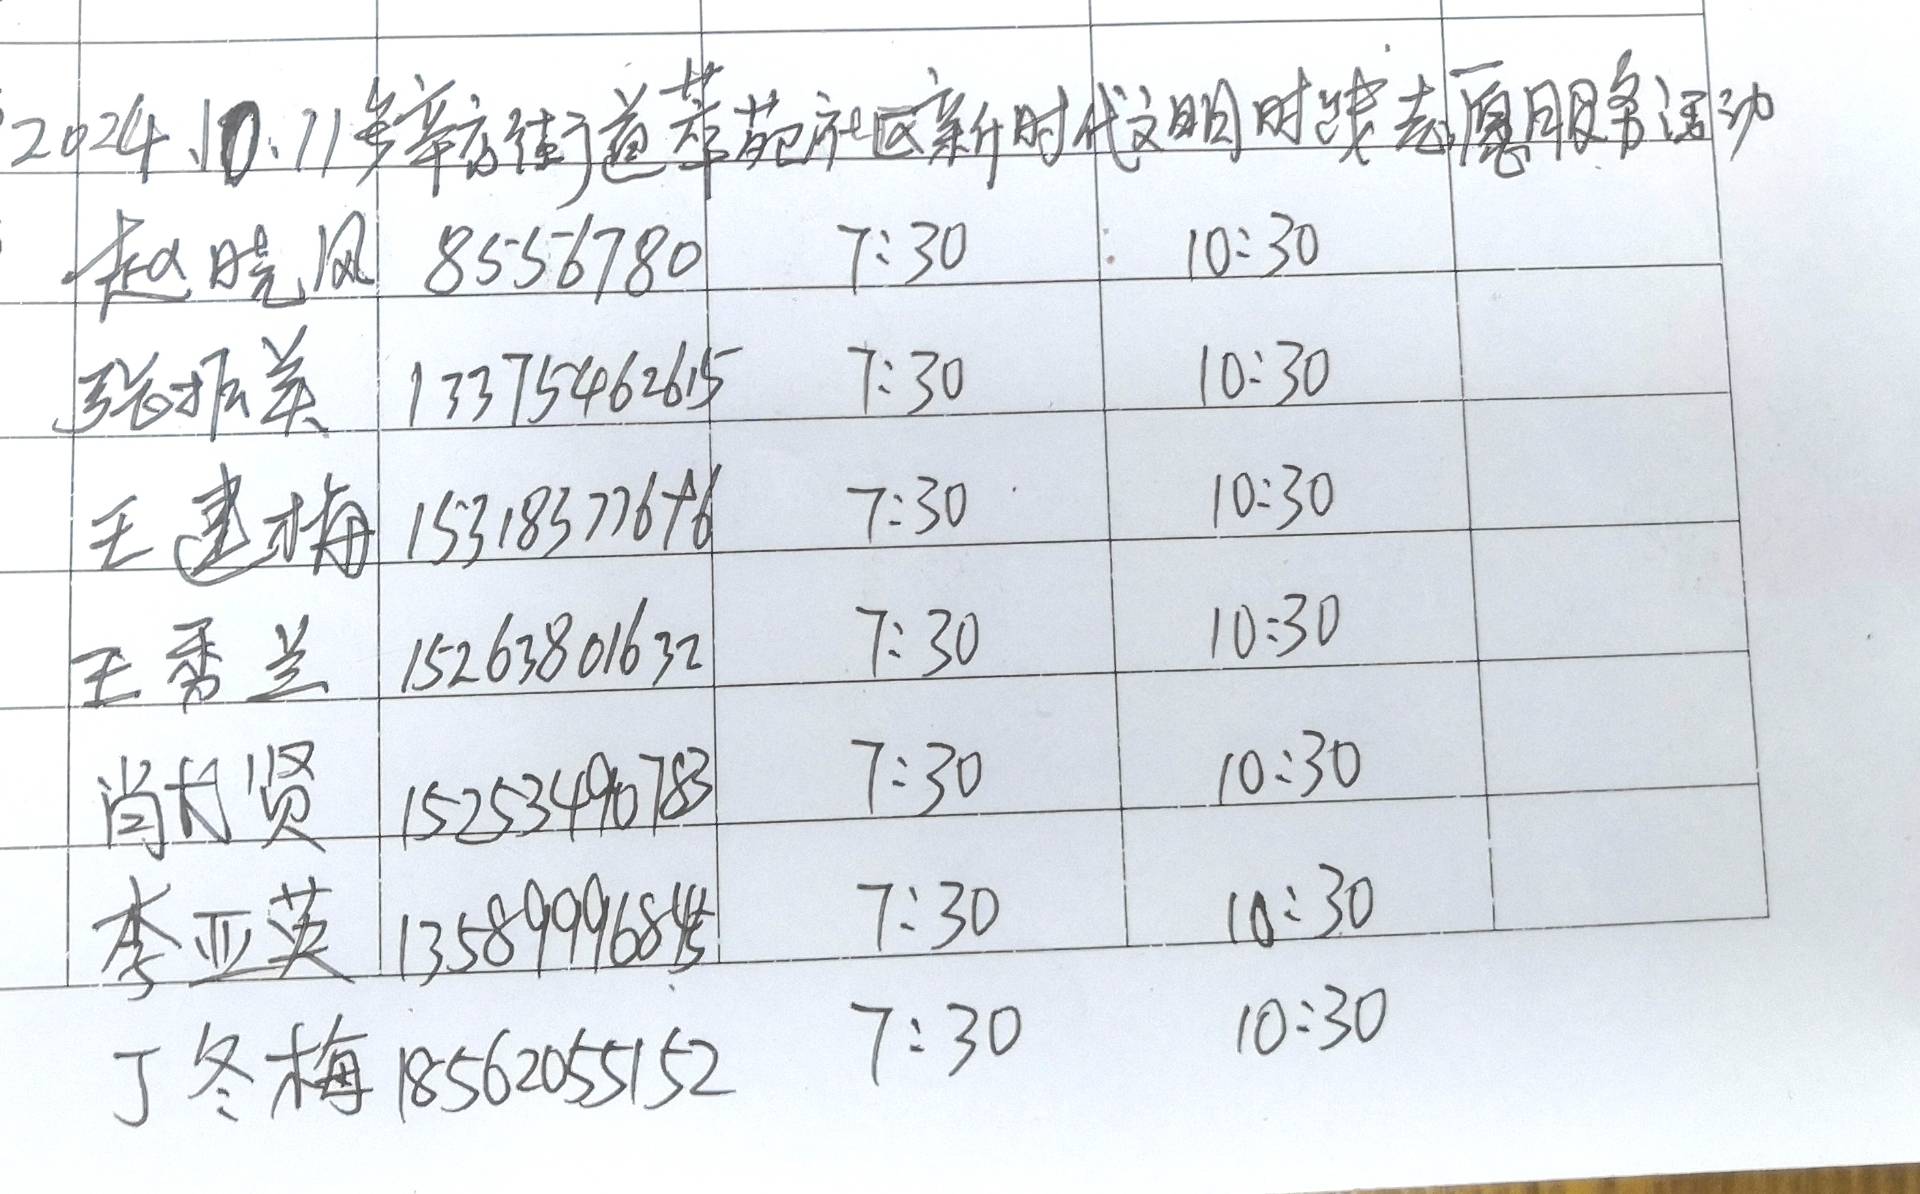 2024.10.11号辛店街道苹苑社区新时代文明时践志愿服务活动
赵晓风 8556780 7:30 10:30
张振英 13375462615 7:30 10:30
王建梅 15318377676 7:30 10:30
王秀兰 15263801632 7:30 10:30
肖村贤 15253490783 7:30 10:30
李亚英 13589996845 7:30 10:30
丁冬梅 18562055152 7:30 10:30